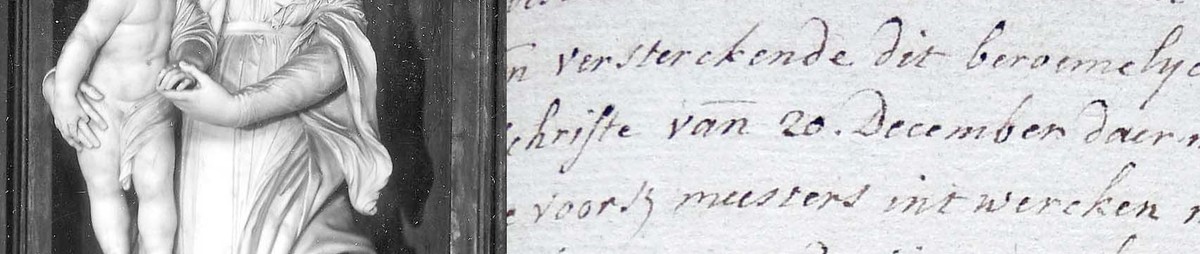 versterckende dit beroemelyc
schrifte van 20. December daer
voorsz meesters int wercken